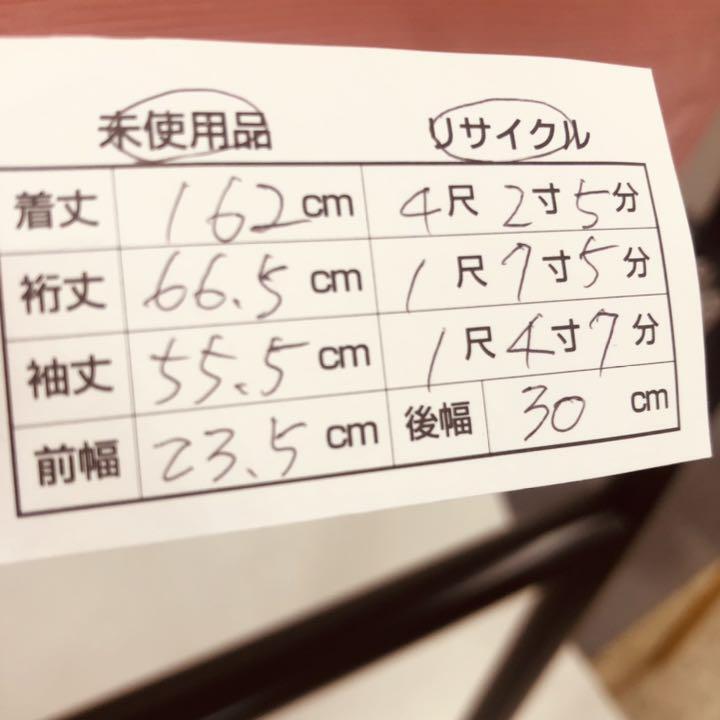 未使用品 リサイクル
着丈 162cm 4尺2寸5分
裄丈 66.5cm 1尺7寸5分
袖丈 55.5cm 1尺4寸7分
前幅 23.5cm 後幅 30cm